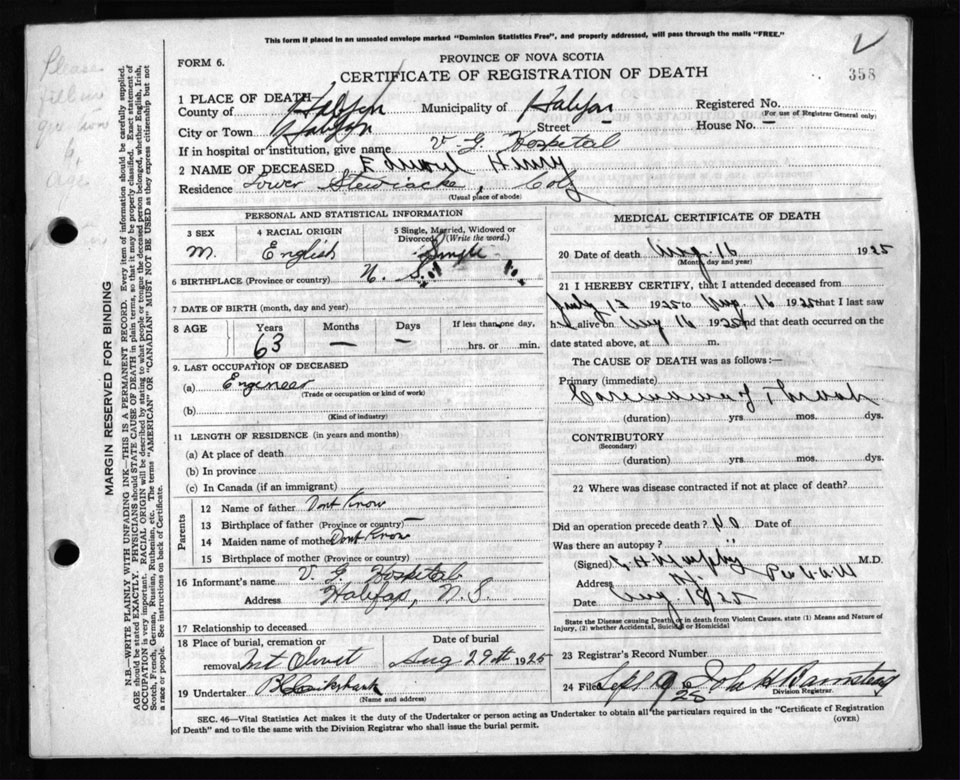 This form if placed in an unsealed envelope marked "Dominion Statistics Free", and properly addressed, will pass through the mails "FREE."
FORM 6.
PROVINCE OF NOVA SCOTIA
CERTIFICATE OF REGISTRATION OF DEATH
358
Please
age
1 PLACE OF DEATH
County of Halifax Municipality of Halifax Registered No.
(For use of Registrar General only)
City or Town Halifax Street House No. —
If in hospital or institution, give name V. G. Hospital
2 NAME OF DECEASED Edward Henry
Residence Lower Stewiacke, Col
(Usual place of abode)
MARGIN RESERVED FOR BINDING
N.B.—WRITE PLAINLY WITH UNFADING INK—THIS IS A PERMANENT RECORD. Every item of information should be carefully supplied.
AGE should be stated EXACTLY. PHYSICIANS should STATE CAUSE OF DEATH in plain terms, so that it may be properly classified. Exact statement of
OCCUPATION is very important. RACIAL ORIGIN will be described by stating to what people or tongue the deceased person belonged, whether English, Irish,
Scotch, French, German, Russian, Ruthenian, etc. The terms "AMERICAN" OR "CANADIAN" MUST NOT BE USED as they express citizenship but not
a race or people. See instructions on back of Certificate.
PERSONAL AND STATISTICAL INFORMATION
3 SEX 4 RACIAL ORIGIN 5 Single, Married, Widowed or
Divorced (Write the word.)
M. English Single
6 BIRTHPLACE (Province or country) N. S.
7 DATE OF BIRTH (month, day and year)
8 AGE Years Months Days If less than one day,
63 — — hrs. or min.
9. LAST OCCUPATION OF DECEASED
(a) Engineer
(Trade or occupation or kind of work)
(b)
(Kind of industry)
11 LENGTH OF RESIDENCE (in years and months)
(a) At place of death
(b) In province
(c) In Canada (if an immigrant)
Parents
12 Name of father Dont Know
13 Birthplace of father (Province or country) —
14 Maiden name of mother Dont Know
15 Birthplace of mother (Province or country)
16 Informant's name V. G. Hospital
Address Halifax, N. S.
17 Relationship to deceased
18 Place of burial, cremation or Date of burial
removal Mt Olivet Aug 29th 1925
19 Undertaker
(Name and address)
MEDICAL CERTIFICATE OF DEATH
20 Date of death Aug 16 1925
(Month, day and year)
21 I HEREBY CERTIFY, that I attended deceased from
July 13 1925 to Aug. 16 1925 that I last saw
h alive on Aug 16 1925 and that death occurred on the
date stated above, at m.
The CAUSE OF DEATH was as follows:—
Primary (immediate)
Carcinoma of Throat
(duration) yrs. mos. dys.
CONTRIBUTORY
(Secondary)
(duration) yrs. mos. dys.
22 Where was disease contracted if not at place of death?
Did an operation precede death? No Date of
Was there an autopsy? "
(Signed) Murphy M.D.
Address
Date Aug. 18/25
State the Disease causing Death, or in death from Violent Causes, state (1) Means and Nature of
Injury, (2) whether Accidental, Suicidal or Homicidal)
23 Registrar's Record Number
24 Filed Sept 9 1925 John H Barnstead
Division Registrar.
SEC. 46—Vital Statistics Act makes it the duty of the Undertaker or person acting as Undertaker to obtain all the particulars required in the "Certificate of Registration
of Death" and to file the same with the Division Registrar who shall issue the burial permit.
(OVER)